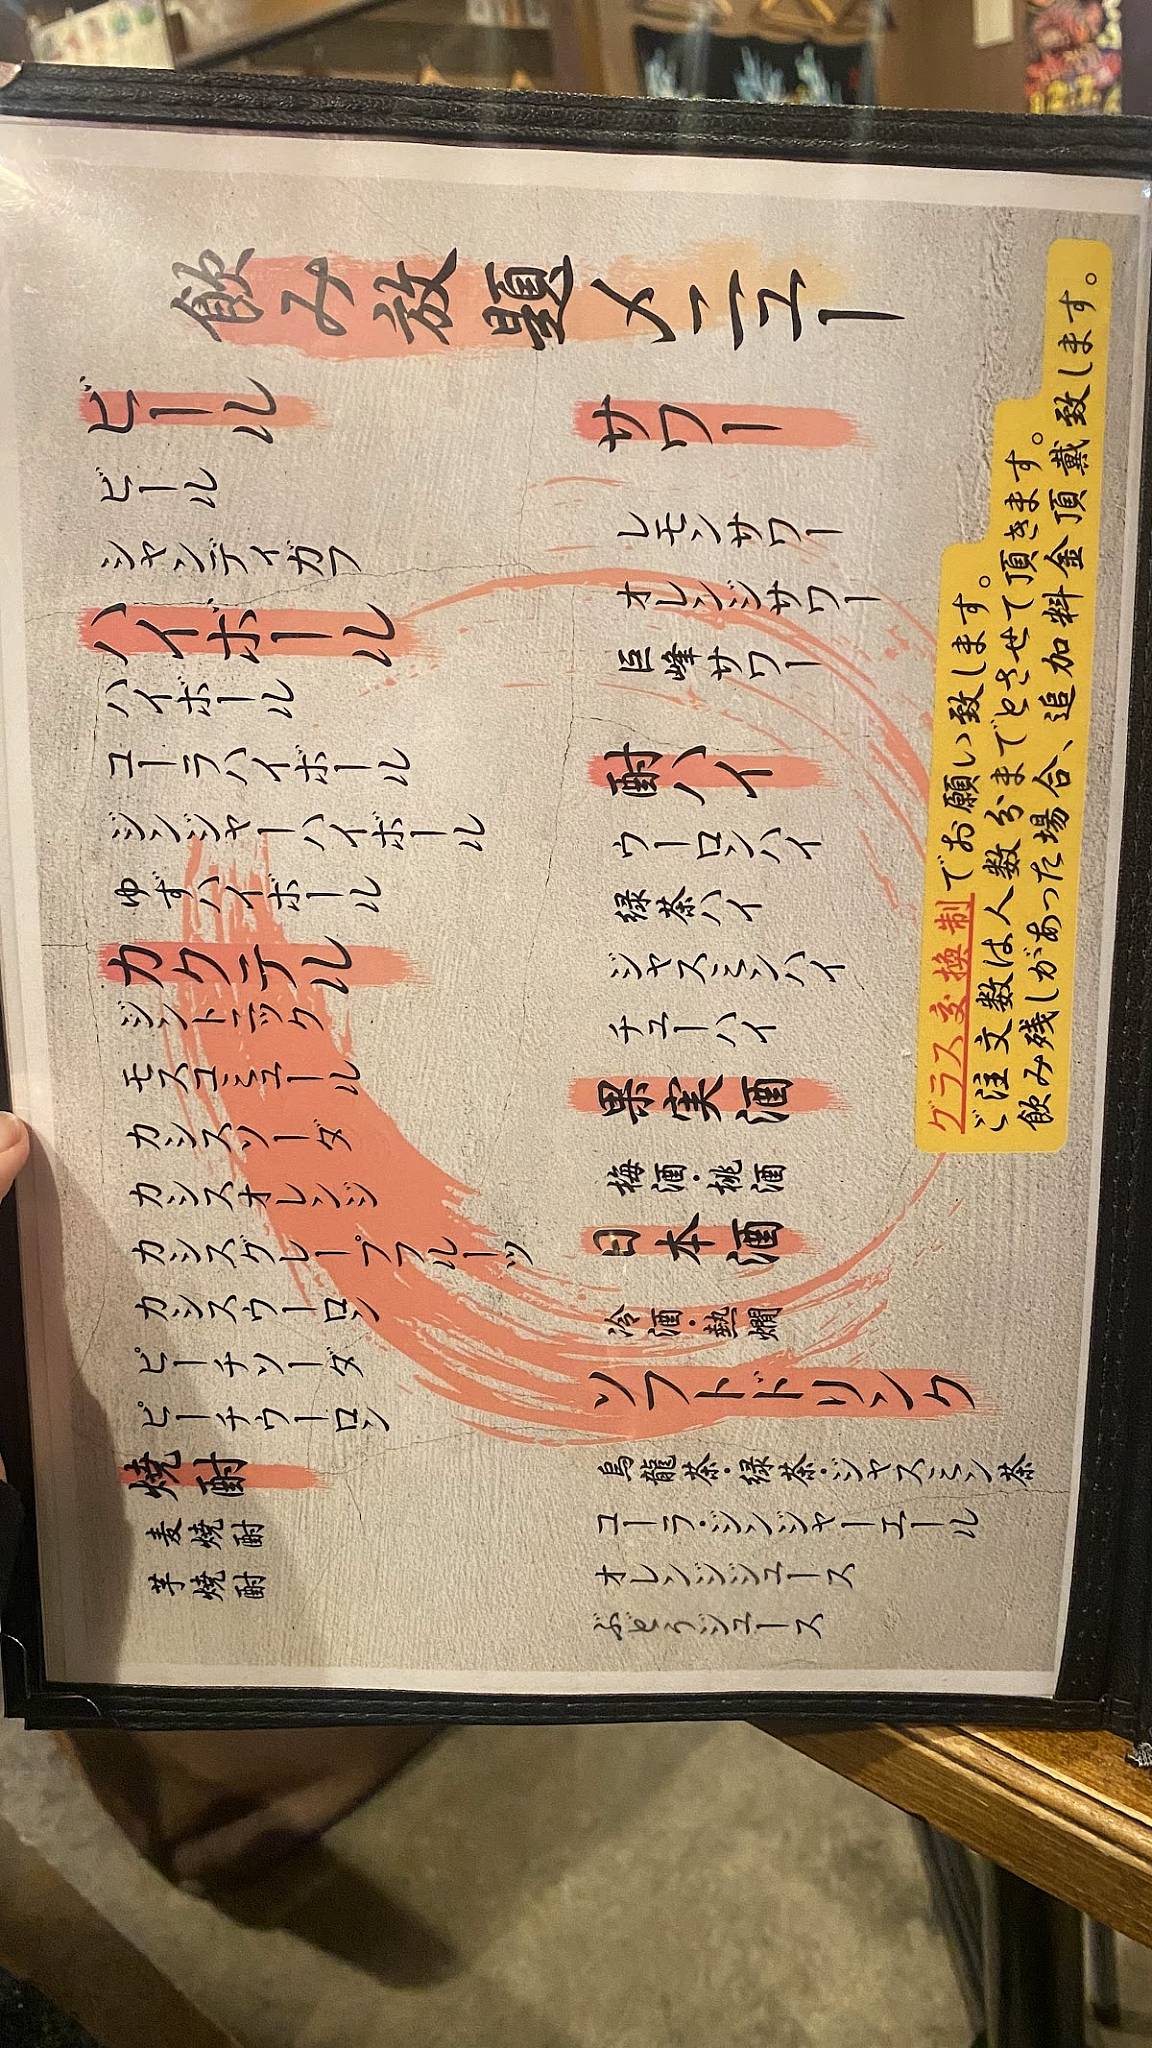 飲み放題メニュー
ビール
ビール
シャンディガフ
ハイボール
ハイボール
コーラハイボール
ジンジャーハイボール
ゆずハイボール
カクテル
ジントニック
モスコミュール
カシスソーダ
カシスオレンジ
カシスグレープフルーツ
カシスウーロン
ピーチソーダ
ピーチウーロン
焼酎
麦焼酎
芋焼酎
サワー
レモンサワー
オレンジサワー
巨峰サワー
酎ハイ
ウーロンハイ
緑茶ハイ
ジャスミンハイ
チューハイ
果実酒
梅酒・桃酒
日本酒
冷酒・熱燗
ソフトドリンク
烏龍茶・緑茶・ジャスミン茶
コーラ・ジンジャーエール
オレンジジュース
ぶどうジュース
グラス交換制でお願い致します。
ご注文数は人数分までとさせて頂きます。
飲み残しがあった場合、追加料金頂戴致します。